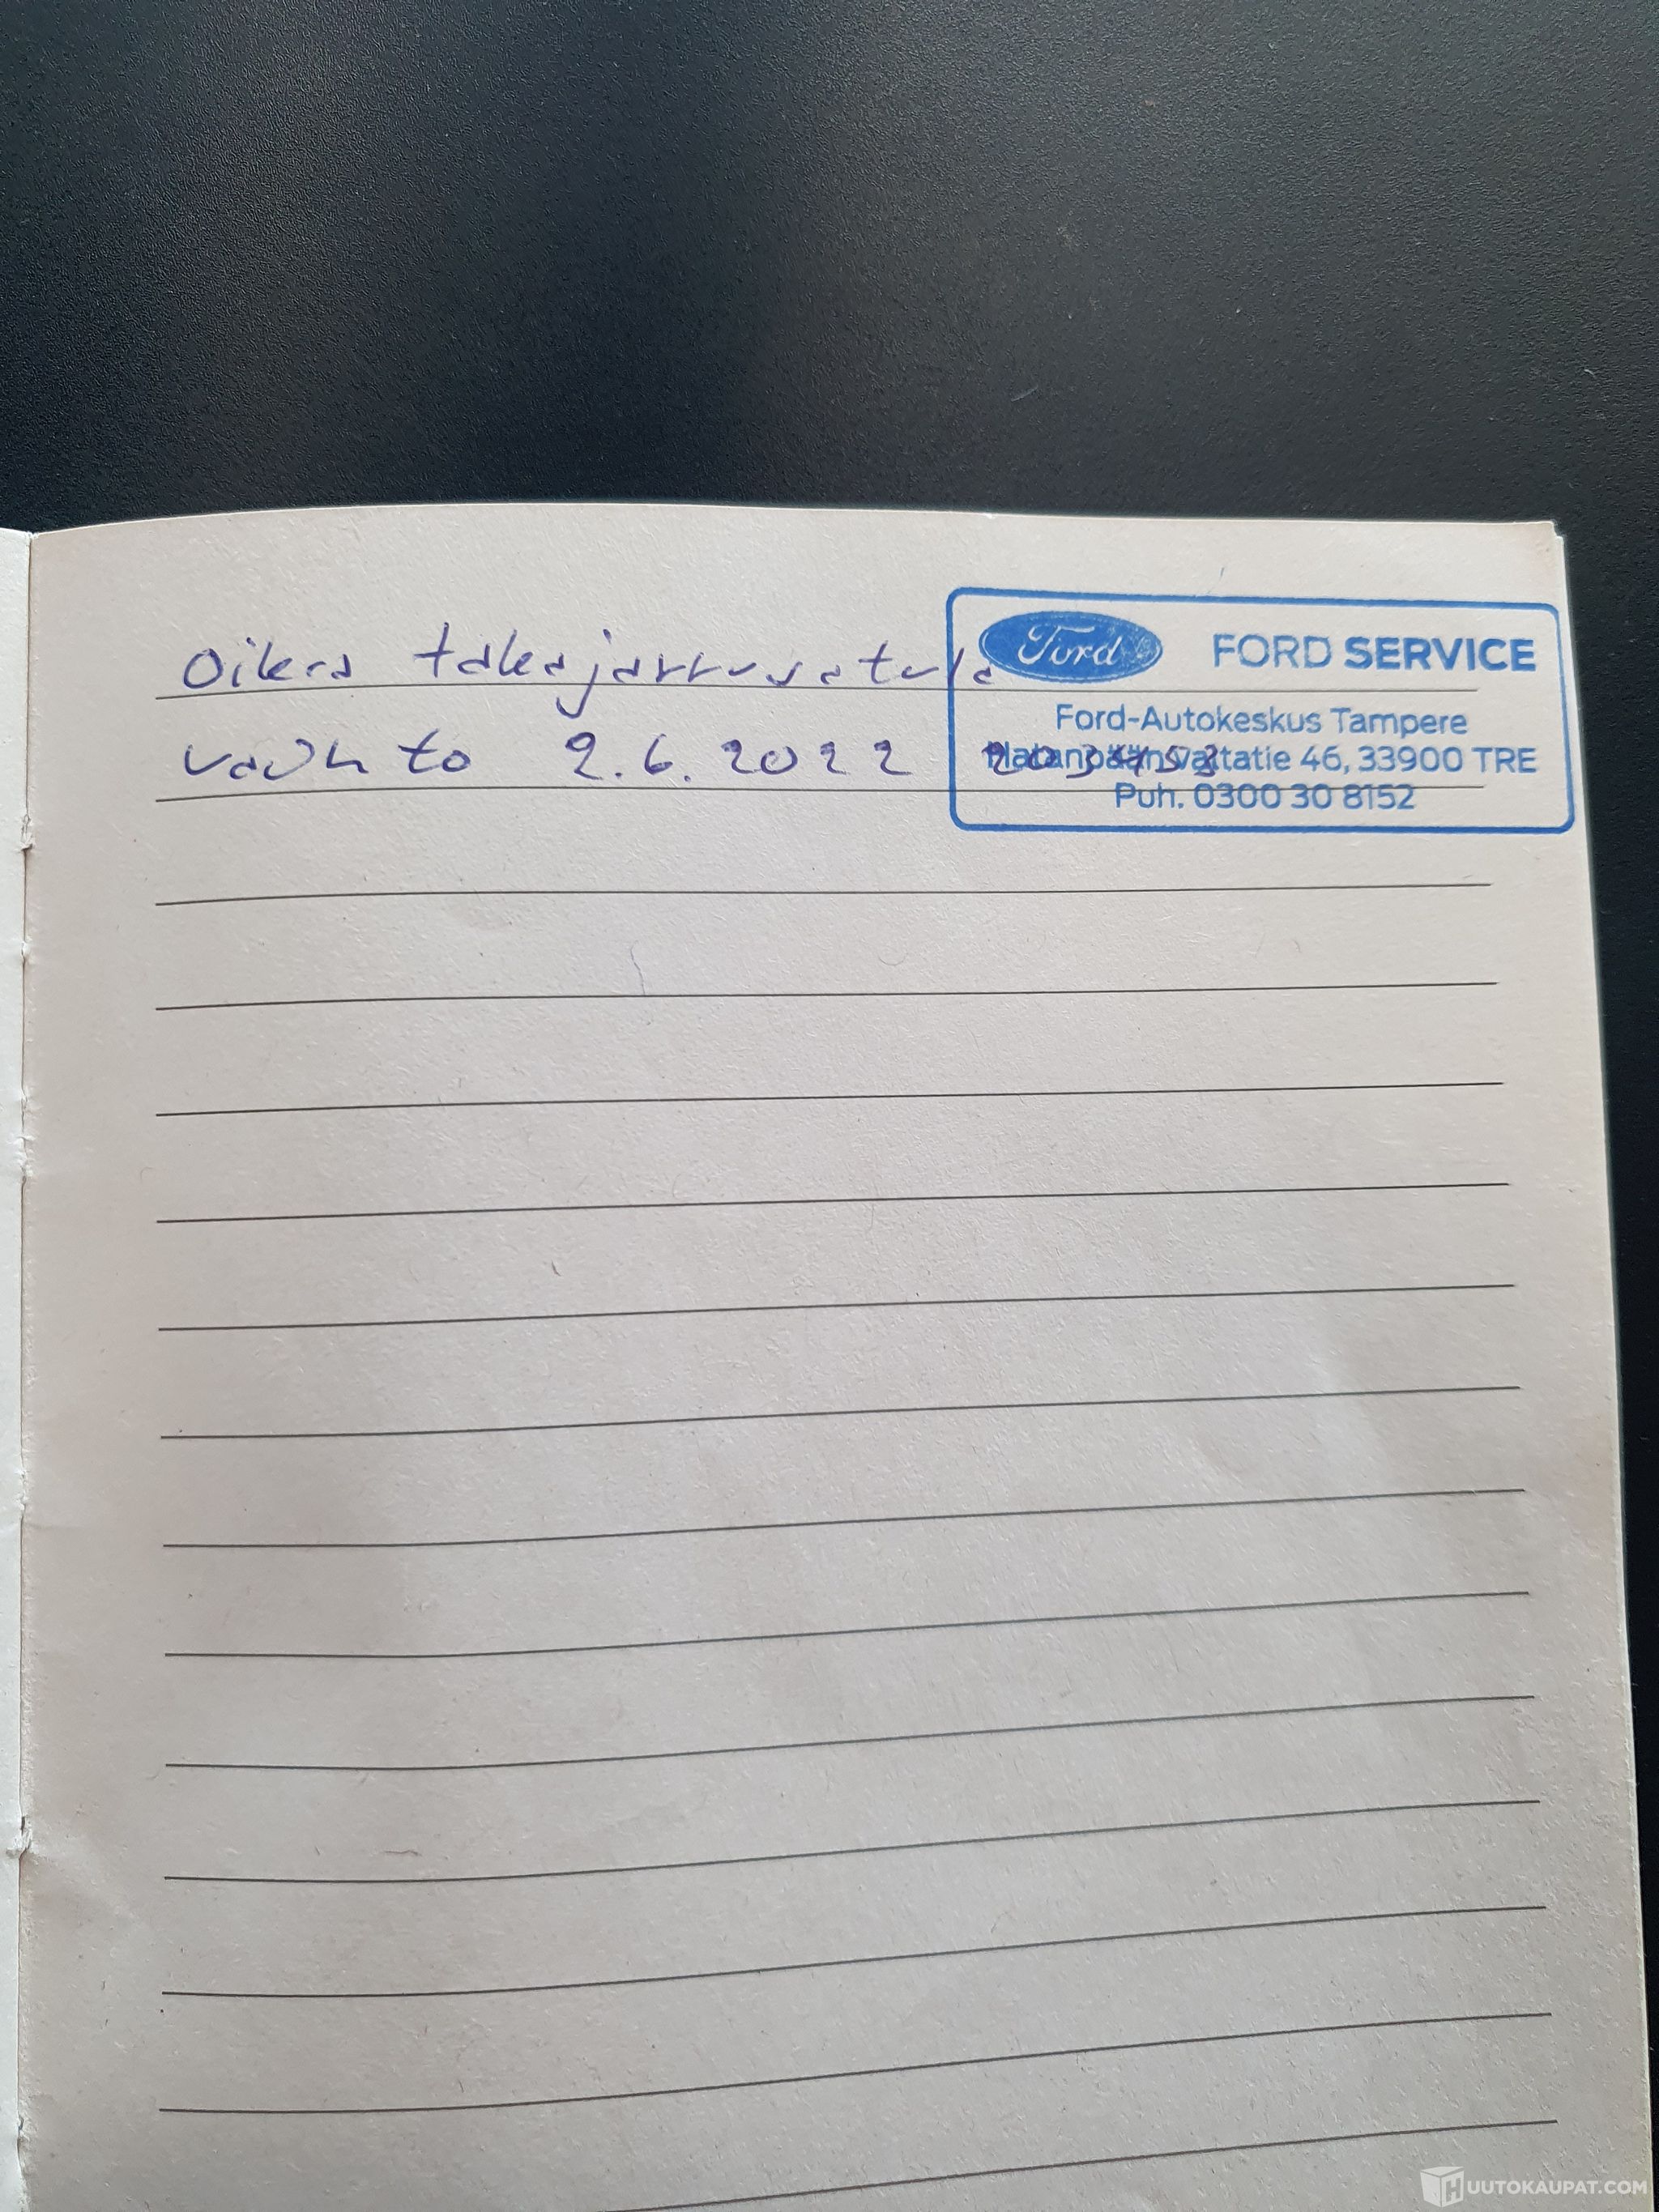 Oikea takajarrusatula
vaihto 2.6.2022 203453
Ford FORD SERVICE
Ford-Autokeskus Tampere
Hatanpään valtatie 46, 33900 TRE
Puh. 0300 30 8152
HUUTOKAUPAT.COM